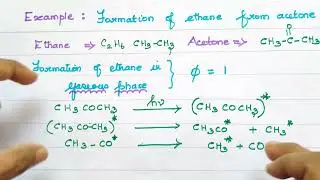 Example : Formation of ethane from acetone
Ethane ⇒ C2H6 CH3-CH3 Acetone ⇒ CH3-C-CH3
O
Formation of ethane in
gaseous phase } ϕ = 1
CH3COCH3 hν → (CH3COCH3)*
(CH3CO-CH3)* → CH3CO* + CH3*
CH3-CO* → CH3* + CO